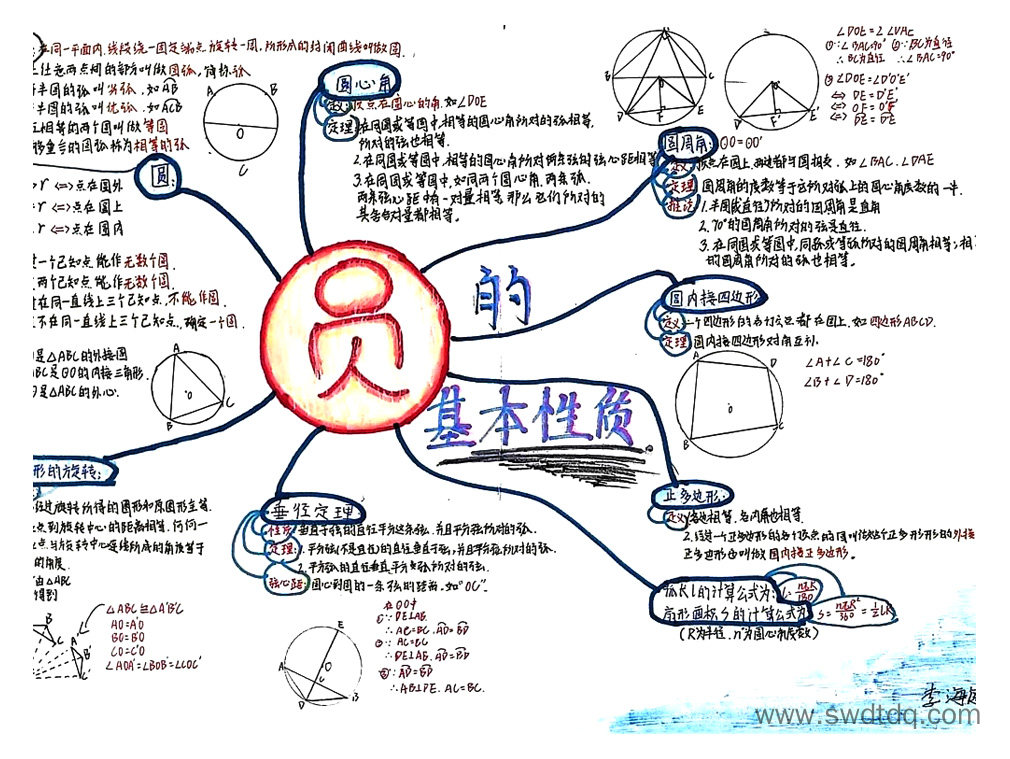 在同一平面内,线段绕一固定端点旋转一周,所形成的封闭曲线叫做圆.
上任意两点间的部分叫做圆弧,简称弧
半圆的弧叫劣弧.如AB
半圆的弧叫优弧.如ACB
相等的两个圆叫做等圆
重合的圆弧称为相等的弧
A B
O
C
圆:
r <=>点在圆外
r <=>点在圆上
r <=>点在圆内
一个已知点能作无数个圆.
两个已知点能作无数个圆.
在同一直线上三个已知点.不能作圆.
不在同一直线上三个已知点.,确定一个圆.
是△ABC的外接圆
BC是⊙O的内接三角形.
是△ABC的外心.
A
O
B C
形的旋转:
经过旋转所得的图形和原图形全等.
点到旋转中心的距离相等.任何一
点与旋转中心连线所成的角度等于
的角度.
由△ABC
得到
△ABC≌△A'B'C'
AO=A'O
BO=B'O
CO=C'O
∠AOA'=∠BOB'=∠COC'
圆心角
定义:顶点在圆心的角.如∠DOE
定理:在同圆或等圆中.相等的圆心角所对的弧相等.
所对的弦也相等.
2.在同圆或等圆中.相等的圆心角所对两条弦的弦心距相等
3.在同圆或等圆中.如同两个圆心角.两条弧.
两条弦心距中有一对量相等.那么它们所对的
其含各对量都相等.
员
的
基本性质.
A
B C
D F E
D' F' E'
∠DOE=2∠DAE
①∵∠BAC=90° ②∵BC为直径
∴BC为直径 ∴∠BAC=90°
③∠DOE=∠D'O'E'
<=> DE=D'E'
<=> OF=O'F'
<=> DE=D'E'
圆周角: ⊙O=⊙O'
定义 顶点在圆上,两边都与圆相交.如∠BAC.∠DAE
定理 圆周角的度数等于它所对弧上的圆心角度数的一半.
推论 1.半圆(或直径)所对的圆周角是直角
2.90°的圆周角所对的弦是直径.
3.在同圆或等圆中.同弧或等弧所对的圆周角相等;相
的圆周角所对的弧也相等.
圆内接四边形
定义:一个四边形的各个顶点都在圆上.如四边形ABCD.
定理 圆内接四边形对角互补.
A D
O
B C
∠A+∠C=180°
∠B+∠D=180°
正多边形:
定义 各边相等.各内角也相等.
2.经过一个正多边形的各个顶点的圆叫做这个正多边形的外接
正多边形也叫做圆内接正多边形.
垂径定理:
性质:垂直于弦的直径平分这条弦.并且平分弦所对的弧.
定理:1.平分弦(不是直径)的直径垂直于弦,并且平分弦所对的弧.
2.平分弧的直径垂直平分弧所对的弦.
弦心距:圆心到圆的一条弦的距离.如"OC".
E
O
A C B
D
在⊙O中
①∵DE⊥AB.
∴AC=BC.AD=BD
②∵AC=BC
∴DE⊥AB.AD=BD
③∵AD=BD
∴AB⊥DE.AC=BC.
弧长l的计算公式为: l=nπR/180
扇形面积S的计算公式为 S=nπR²/360=1/2lR
(R为半径.n°为圆心角度数)
李海
www.swdtdq.com